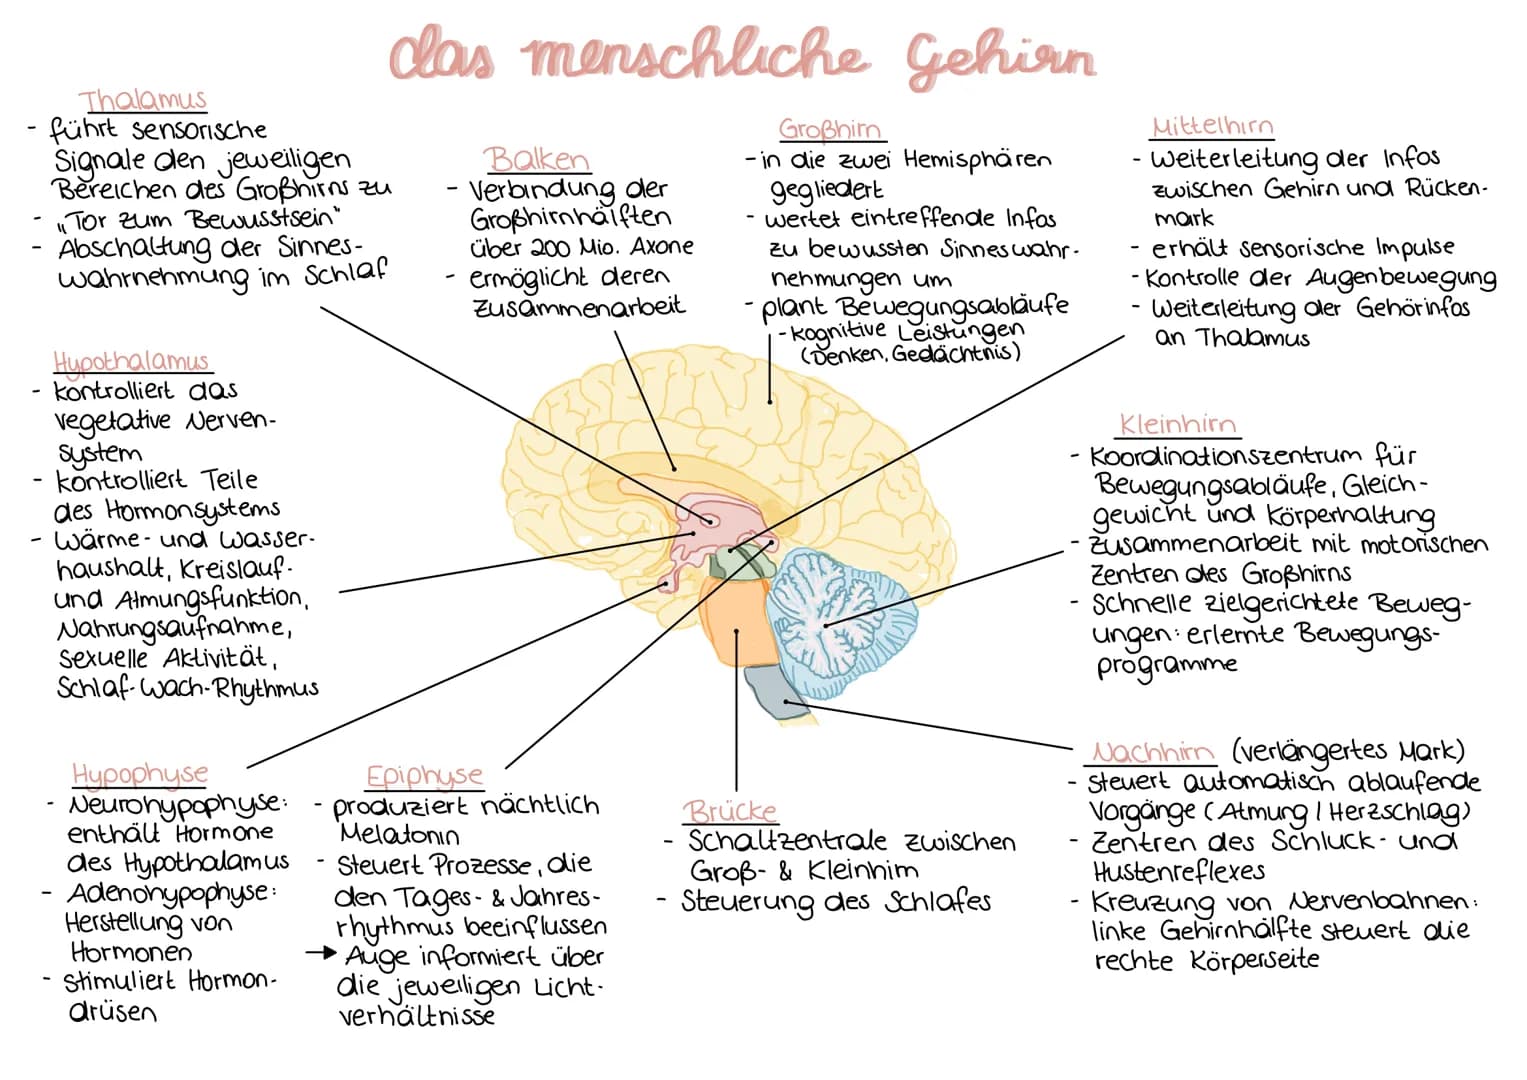 das menschliche Gehirn
Thalamus
- führt sensorische
Signale den jeweiligen
Bereichen des Großhirns zu
- „Tor zum Bewusstsein“
- Abschaltung der Sinnes-
wahrnehmung im Schlaf
Balken
- Verbindung der
Großhirnhälften
über 200 Mio. Axone
- ermöglicht deren
Zusammenarbeit
Großhirn
- in die zwei Hemisphären
gegliedert
- wertet eintreffende Infos
zu bewussten Sinneswahr-
nehmungen um
- plant Bewegungsabläufe
- kognitive Leistungen
(Denken, Gedächtnis)
Mittelhirn
- Weiterleitung der Infos
zwischen Gehirn und Rücken-
mark
- erhält sensorische Impulse
- Kontrolle der Augenbewegung
- Weiterleitung der Gehörinfos
an Thalamus
Hypothalamus
- kontrolliert das
vegetative Nerven-
system
- kontrolliert Teile
des Hormonsystems
- Wärme- und Wasser-
haushalt, Kreislauf-
und Atmungsfunktion,
Nahrungsaufnahme,
sexuelle Aktivität,
Schlaf-Wach-Rhythmus
Kleinhirn
- Koordinationszentrum für
Bewegungsabläufe, Gleich-
gewicht und Körperhaltung
- Zusammenarbeit mit motorischen
Zentren des Großhirns
- Schnelle zielgerichtete Beweg-
ungen: erlernte Bewegungs-
programme
Hypophyse
- Neurohypophyse:
enthält Hormone
des Hypothalamus
- Adenohypophyse:
Herstellung von
Hormonen
- stimuliert Hormon-
drüsen
Epiphyse
- produziert nächtlich
Melatonin
- Steuert Prozesse, die
den Tages- & Jahres-
rhythmus beeinflussen
→ Auge informiert über
die jeweiligen Licht-
verhältnisse
Brücke
- Schaltzentrale zwischen
Groß- & Kleinhirn
- Steuerung des Schlafes
Nachhirn (verlängertes Mark)
- steuert automatisch ablaufende
Vorgänge (Atmung / Herzschlag)
- Zentren des Schluck- und
Hustenreflexes
- Kreuzung von Nervenbahnen:
linke Gehirnhälfte steuert die
rechte Körperseite